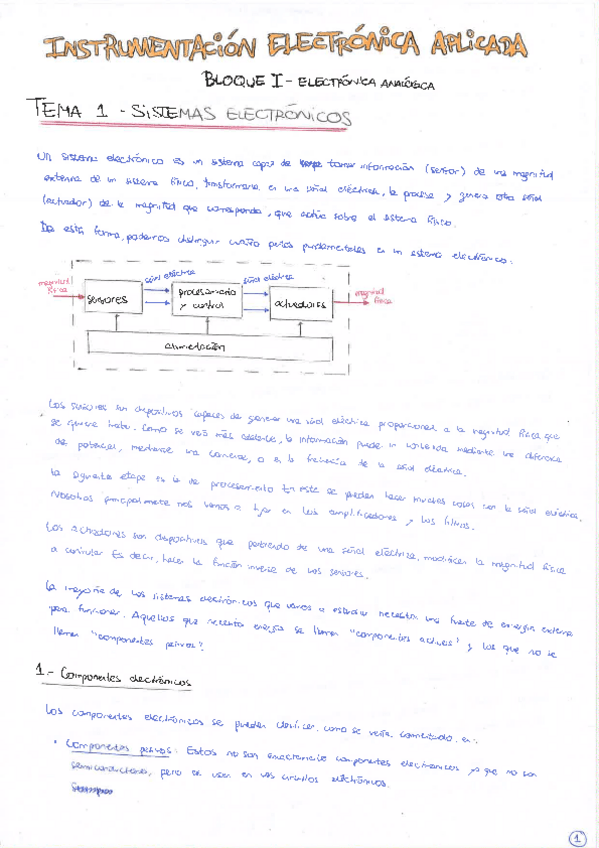 INSTRUMENTACIÓN ELECTRÓNICA APLICADA
BLOQUE I - ELECTRÓNICA ANALÓGICA
TEMA 1 - SISTEMAS ELECTRÓNICOS
Un sistema electrónico es un sistema capaz de tomar información (sensor) de una magnitud
externa de un sistema físico, transformarla en una señal eléctrica, la procesa y genera otra señal
(actuador) de la magnitud que corresponda, que actúa sobre el sistema físico.
De esta forma, podemos distinguir cuatro partes fundamentales en un sistema electrónico:
magnitud física
sensores
señal eléctrica
procesamiento y control
señal eléctrica
actuadores
magnitud física
alimentación
Los sensores son dispositivos capaces de generar una señal eléctrica proporcional a la magnitud física que
se quiere tratar. Como se verá más adelante, la información puede ir contenida mediante una diferencia
de potencial, mediante una corriente, o en la frecuencia de la señal eléctrica.
La siguiente etapa es la de procesamiento. En esta se pueden hacer muchas cosas con la señal eléctrica.
Nosotros principalmente nos vamos a fijar en los amplificadores y los filtros.
Los actuadores son dispositivos que partiendo de una señal eléctrica, modifican la magnitud física
a controlar. Es decir, hacen la función inversa de los sensores.
La mayoría de los sistemas electrónicos que vamos a estudiar necesitan una fuente de energía externa
para funcionar. Aquellos que necesitan energía se llaman "componentes activos" y los que no se
llaman "componentes pasivos".
1.- Componentes electrónicos
Los componentes electrónicos se pueden clasificar, como se venía comentando, en:
• Componentes pasivos: Estos no son exactamente componentes electrónicos ya que no son
semiconductores, pero se usan en los circuitos electrónicos.
1